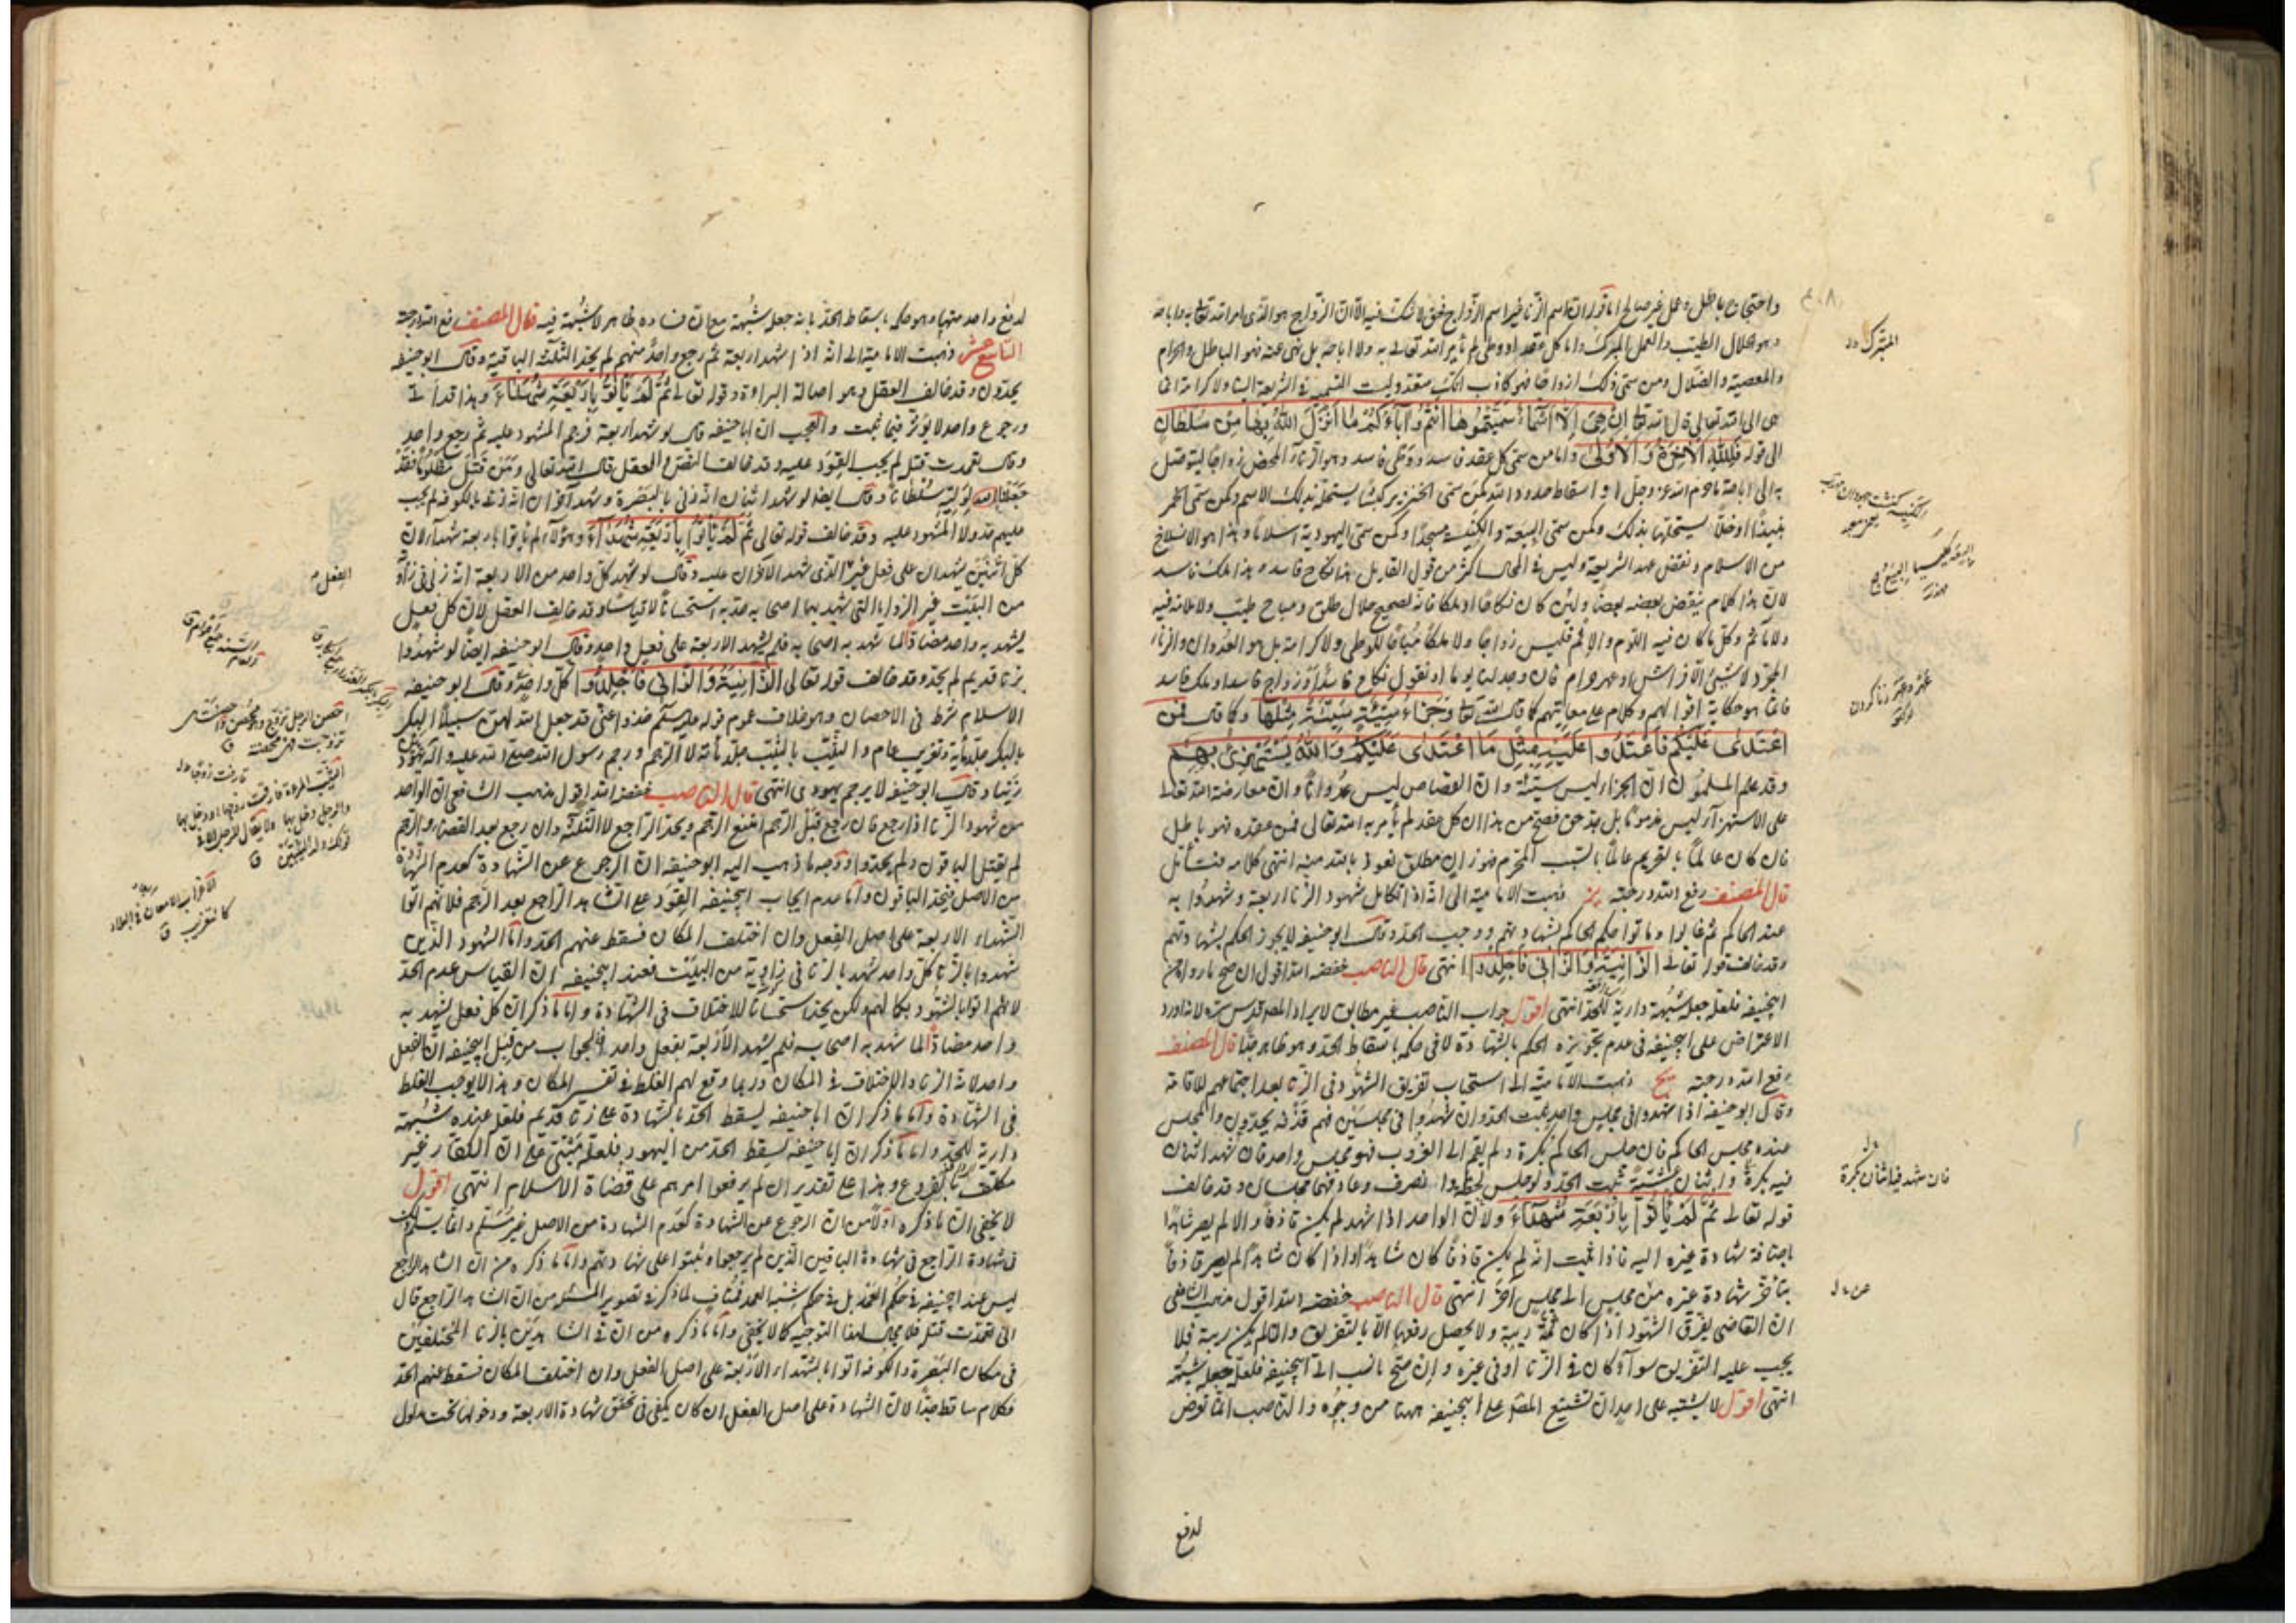 واحتجاج باطل وعمل غير صالح اما قوله ان اسم الزنا غير اسم الزواج فحق لا شك فيه الا ان الزواج هو الذي امر الله تعالى به واباحه
وهو الحلال الطيب والعمل المبرك واما كل عقد او وطي لم يأمر الله تعالى به ولا اباحه بل نهى عنه فهو الباطل والحرام
والمعصية والضلال ومن سمى ذلك ازواجا فهو كاذب معتد وليست التسمية في الشريعة الينا ولا كرامة انما
هي الى الله تعالى قال الله تعالى ان هي الا اسماء سميتموها انتم وآباءكم ما انزل الله بها من سلطان
الى قوله فلله الاخرة والاولى واما من سمى كل عقد فاسد ووطي فاسد وهو الزنا المحض زواجا ليتوصل
به الى اباحة ما حرم الله عز وجل او اسقاط حدود الله كمن سمى الخنزير كبشا يستحله بذلك الاسم وكمن سمى الخمر
نبيذا او خلا يستحلها بذلك وكمن سمى البيعة والكنيسة مسجدا وكمن سمى اليهودية اسلاما وهذا هو الانسلاخ
من الاسلام ونقض عهد الشريعة وليس في المحال اكثر من قول القايل هذا نكاح فاسد وهذا ملك فاسد
لان هذا كلام ينقض بعضه بعضا ولئن كان نكاحا او ملكا فانه لصحيح حلال طلق ومباح طيب ولا ملامة فيه
ولا مأثم وكل ما كان فيه اللوم والاثم فليس زواجا ولا ملكا مباحا للوطي ولا كرامة بل هو العدوان والزنا
المجرد لا شيئ الا فراش او عهر حرام فان وجد لنا يوما ان نقول نكاح فاسد او زواج فاسد او ملك فاسد
فانما هو حكاية اقوالهم وكلام على معانيهم كما قال الله تعالى وجزاء سيئة سيئة مثلها وكما قال فمن
اعتدى عليكم فاعتدوا عليه بمثل ما اعتدى عليكم والله يستهزئ بهم
وقد علم المسلمون ان الجزاء ليس سيئة وان القصاص ليس عدوانا وان معارضة الله تعالى
على الاستهزاء ليس مذموما بل هو حق فصح من هذا ان كل عقد لم يأمر به الله تعالى فمن عقده فهو باطل
فان كان عالما بالتحريم عالما بالسبب المحرم فهو زان مطلق نعوذ بالله منه انتهى كلامه فتأمل
قال المصنف رفع الله درجته يز ذهبت الامامية الى انه اذا تكامل شهود الزنا اربعة وشهدوا به
عند الحاكم ثم غابوا وماتوا حكم الحاكم بشهادتهم ووجب الحد وقال ابو حنيفة لا يجوز الحكم بشهادتهم
وقد خالف قوله تعالى الزانية والزاني فاجلدوا انتهى قال الناصب خفضه الله اقول ان صح ما رواه عن
ابيحنيفة فلعله جعله شبهة دارية للحد انتهى اقول جواب الناصب غير مطابق لايراد المص قدس سره لانه اورد
الاعتراض على ابيحنيفة في عدم تجويزه الحكم بالشهادة لا في حكمه باسقاط الحد وهو ظاهر جدا قال المصنف
رفع الله درجته يح ذهبت الامامية الى استحباب تفريق الشهود في الزنا بعد اجتماعهم للاقامة
وقال ابو حنيفة اذا شهدوا في مجلس واحد ثبت الحد وان شهدوا في مجلسين فهم قذفة يحدون والمجلس
عنده مجلس الحاكم فان جلس الحاكم بكرة ولم يقم الى الغروب فهو مجلس واحد فان شهد اثنان
فيه بكرة واثنان عشية ثبت الحد ولو جلس لحظة وانصرف وعاد فهما مجلسان وقد خالف
قوله تعالى ثم لم يأتوا باربعة شهداء ولان الواحد اذا شهد لم يكن قاذفا والا لم يصر شاهدا
باضافة شهادة غيره اليه فاذا ثبت انه لم يكن قاذفا كان شاهدا واذا كان شاهدا لم يصر قاذفا
بتأخر شهادة غيره من مجلس الى مجلس آخر انتهى قال الناصب خفضه الله اقول مذهب الشافعي
ان القاضي يفرق الشهود اذا كان ثمة ريبة ولا يحصل رفعها الا بالتفريق وان لم يكن ريبة فلا
يجب عليه التفريق سواء كان في الزنا او في غيره وان صح ما نسب الى ابيحنيفة فلعله جعله شبهة
انتهى اقول لا يشتبه على احد ان تشنيع المص على ابيحنيفة ههنا من وجوه والناصب انما تعرض
لدفع
المبرك
فان شهد فيه اثنان بكرة
لدفع واحد منها وهو حكمه باسقاط الحد بانه جعل شبهة مع ان فساده ظاهر لا شبهة فيه قال المصنف رفع الله درجته
التاسع عشر ذهبت الامامية الى انه اذا شهد اربعة ثم رجع واحد منهم لم يحد الثلثة الباقية وقال ابو حنيفة
يحدون وقد خالف العقل وهو اصالة البراءة وقوله تعالى ثم لم يأتوا باربعة شهداء وهذا قد اتى
ورجوع واحد لا يؤثر فيما ثبت والعجب ان ابا حنيفة قال لو شهد اربعة فرجم المشهود عليه ثم رجع واحد
وقال تعمدت قتله لم يجب القود عليه وقد خالف النص والعقل قال الله تعالى ومن قتل مظلوما فقد
جعلنا لوليه سلطانا وقال ايضا لو شهد اثنان انه زنى بالبصرة وشهد آخران انه زنى بالكوفة لم يجب
عليهم حد ولا المشهود عليه وقد خالف قوله تعالى ثم لم يأتوا باربعة شهداء وهؤلاء لم يأتوا باربعة شهداء لان
كل اثنين يشهدان على فعل غير الذي شهد الآخران عليه وقال لو شهد كل واحد من الاربعة انه زنى في زاوية
من البيت غير الزوايا التي شهد بها اصحابه حد به استحسانا لا قياسا وقد خالف العقل لان كل فعل
يشهد به واحد مضاد لما شهد به اصحابه فلم يشهد الاربعة على فعل واحد وقال ابو حنيفة ايضا لو شهدوا
بزنا قديم لم يحد وقد خالف قوله تعالى الزانية والزاني فاجلدوا كل واحد وقال ابو حنيفة
الاسلام شرط في الاحصان وهو خلاف عموم قوله عليه السلام خذوا عني قد جعل الله لهن سبيلا البكر
بالبكر جلد مأية وتغريب عام والثيب بالثيب جلد مأية لا الرجم ورجم رسول الله صلى الله عليه وآله يهوديين
زنيا وقال ابو حنيفة لا يرجم يهودي انتهى قال الناصب خفضه الله اقول مذهب الشافعي ان الواحد
من شهود الزنا اذا رجع فان رجع قبل الرجم امتنع الرجم ويحد الراجع لا الثلثة وان رجع بعد القضاء والرجم
لم يقتل الباقون ولم يحدوا ووجه ما ذهب اليه ابو حنيفة ان الرجوع عن الشهادة كعدم الشهادة
من الاصل فيحد الباقون واما عدم ايجاب ابيحنيفة القود على الشاهد الراجع بعد الرجم فلانهم اتوا
الشهداء الاربعة على اصل الفعل وان اختلف المكان فسقط عنهم الحد واما الشهود الذين
شهدوا بالزنا كل واحد شهد بالزنا في زاوية من البيت فعند ابيحنيفة ان القياس عدم الحد
لانهم اتوا بالشهود بكمالهم ولكن يحد استحسانا للاختلاف في الشهادة واما ما ذكر ان كل فعل يشهد به
واحد مضاد لما شهد به اصحابه فلم يشهد الاربعة بفعل واحد فالجواب من قبل ابيحنيفة ان الفعل
واحد لانه الزنا والاختلاف في المكان وربما وقع لهم الغلط في نفس المكان وهذا لا يوجب الغلط
في الشهادة واما ما ذكر ان ابا حنيفة يسقط الحد بالشهادة على زنا قديم فلعل عنده شبهة
دارية للحد واما ما ذكر ان ابا حنيفة يسقط الحد من اليهود فلعله مبتنى على ان الكفار غير
مكلف بالفروع وهذا على تقدير ان لم يرفعوا امرهم على قضاة الاسلام انتهى اقول
لا يخفى ان ما ذكره اولا من ان الرجوع عن الشهادة كعدم الشهادة من الاصل غير مسلم وانما يستلزم
في شهادة الراجع في شهادة الباقين الذين لم يرجعوا وثبتوا على شهادتهم واما ما ذكره من ان الشاهد الراجع
ليس عند ابيحنيفة في حكم العمد بل في حكم شبه العمد فمناف لما ذكر في تصوير المسئلة من ان الشاهد الراجع قال
اني تعمدت قتله فلا مجال لهذا التوجيه كما لا يخفى واما ما ذكره من ان في الشاهدين بالزنا المختلفين
في مكان البصرة والكوفة اتوا بالشهداء الاربعة على اصل الفعل وان اختلف المكان فسقط عنهم الحد
فكلام ساقط جدا لان الشهادة على اصل الفعل ان كان يكفي في تحقق شهادة الاربعة ودخولها تحت مدلول
الفعل